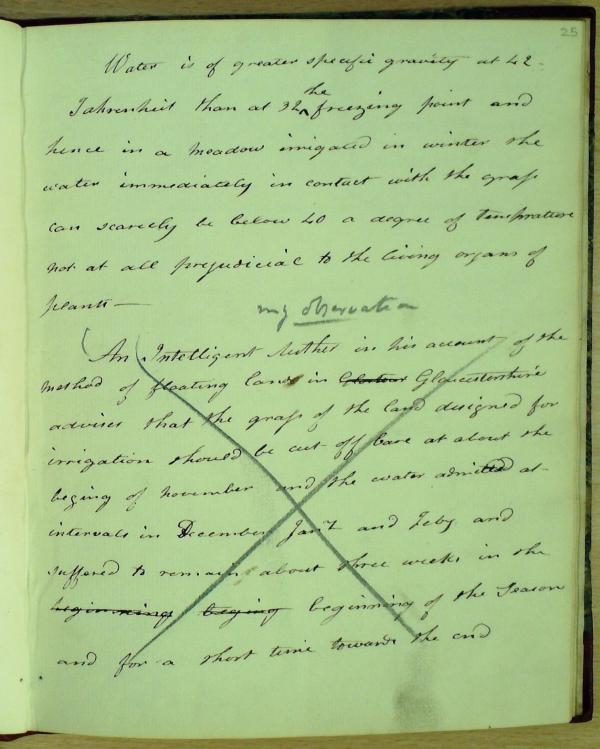 25
Water is of greater specific gravity at 42
Fahrenheit than at 32 the freezing point and
hence in a meadow irrigated in winter the
water immediately in contact with the grass
can scarcely be below 40 a degree of temprature
not at all prejudicial to the living organs of
plants —
my observation
An Intelligent Author in his account of the
method of floating land in Gloucestershire
advises that the grass of the land designed for
irrigation should be cut off bare at about the
beging of November and the water admitted at
intervals in December Jany and Feby and
suffered to remain about three weeks in the
beginning beging beginning of the Season
and for a short time towards the end